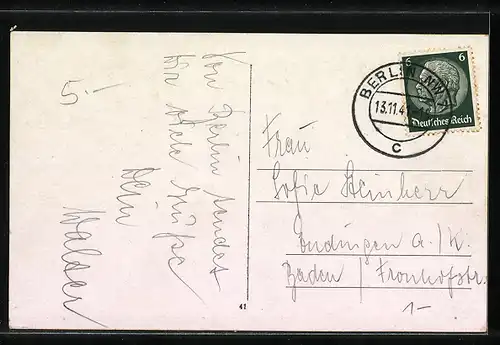 Von Berlin sendet
Dir viele Grüße
Dein
Walter
5
41
BERLIN NW 7
13.11.4
c
6 6
Deutsches Reich
Frau
Sofie Steinherr
Endingen a./K.
Baden / Fronhofstr.
1-